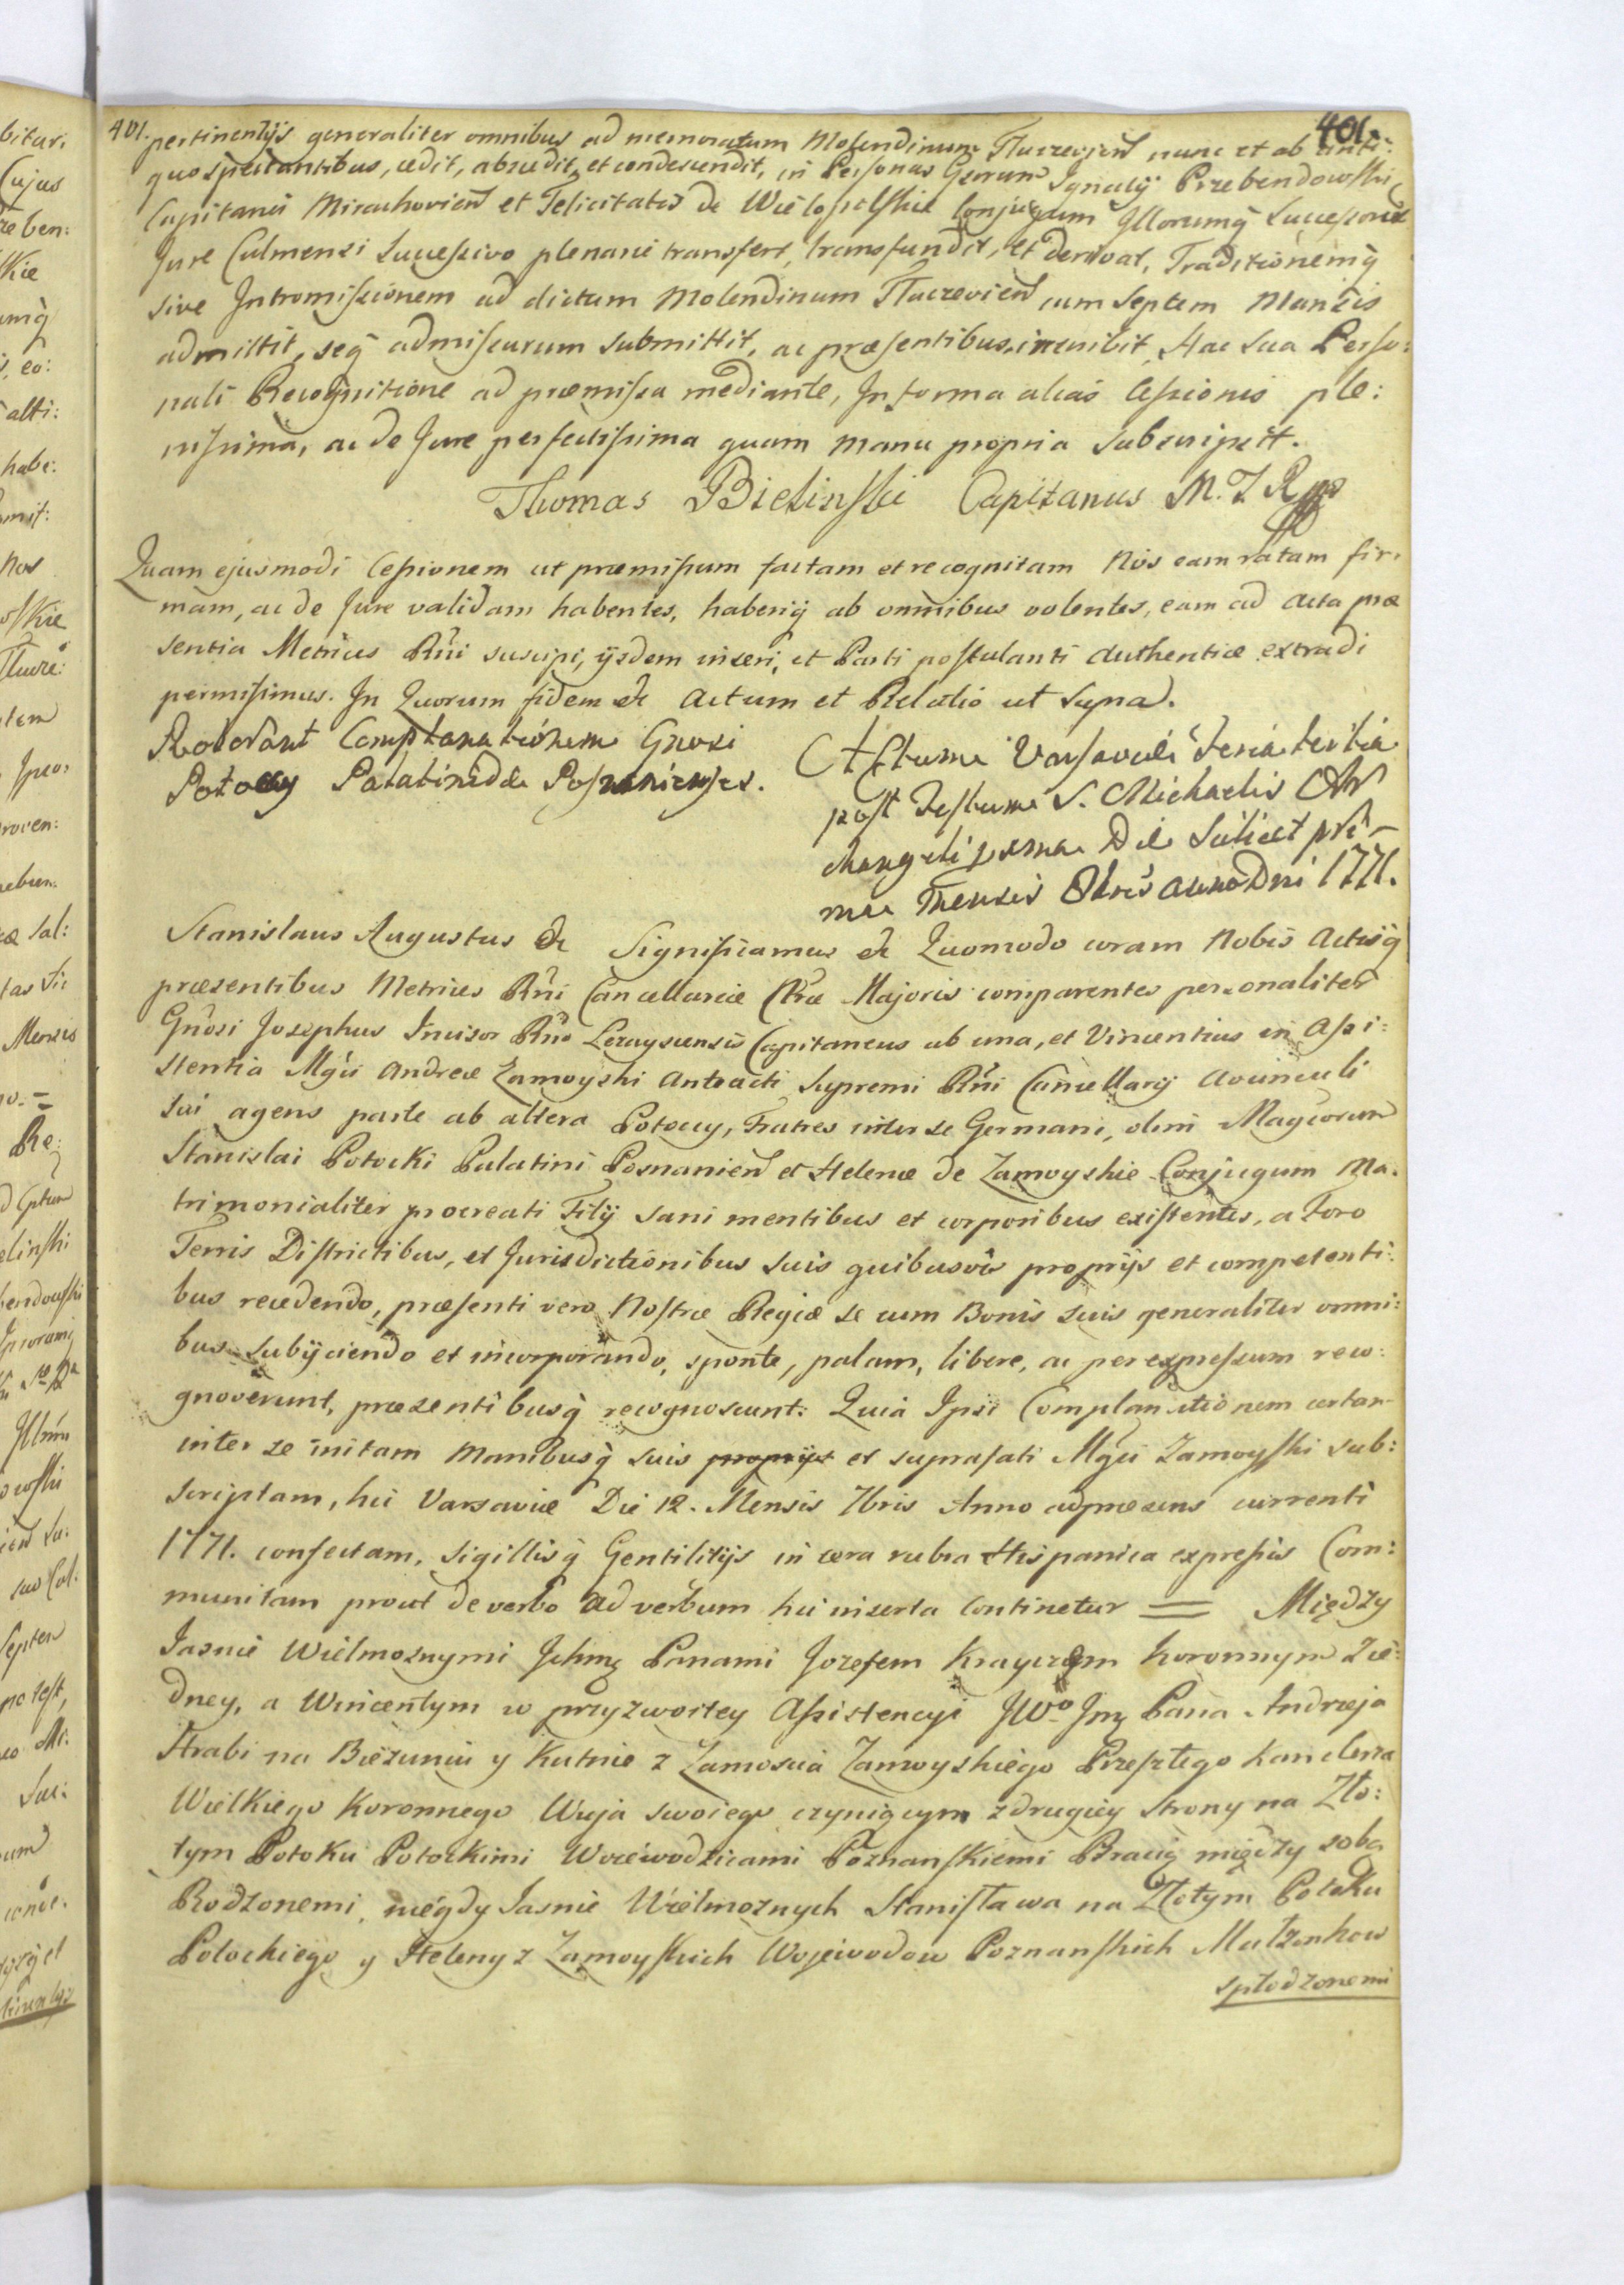 401. 401.
pertinentijs generaliter omnibus ad memoratum Molendinum Tluczevien nunc et ab anti:
quo spectantibus, cedit, abscedit, et condescendit, in Personas Gsorum Ignacij Przebendowski
Capitanei Mirachovien et Felicitatis de Wielopolskie Conjugum Illorumq Successorum
Jure Culmensi Successivo plenarie transfert, transfundit, et derivat, Traditionemq
sive Intromissionem ad dictum Molendinum Tluczevien cum Septem Mansis
admittit, seq admissurum submittit, ac præsentibus inscribit Hac sua Perso:
nali Recognitione ad præmissa mediante, In forma alias Cessionis ple:
nissima, ac de Jure perfectissima quam manu propria subscripsit.
Thomas Bielinski Capitanus M. J. R
Quam ejusmodi Cessionem ut præmissum factam et recognitam Nos eam ratam fir:
mam, ac de Jure validam habentes, haberiq ab omnibus volentes, eam ad Acta præ
sentia Metrices Rñi suscipi, ijsdem inseri, et Parti postulanti Authentice extradi
permisimus. In Quorum fidem &c Actum et Relatio ut supra.
Roborant Complanationem Gnosi
Potoccy Palatinidde Posnanienses.
Actum Varsaviæ Feria tertia
post Festum S. Michaelis Ar
changeli proxima Die scilicet pri-
ma Mensis Obris anno Dni 1771.
Stanislaus Augustus &c Significamus &c Quomodo coram Nobis Actisq
præsentibus Metrices Rñi Cancellariæ Ntræ Majoris comparentes personaliter
Gñosi Josephus Incisor Rñi Leraysensis Capitaneus ab una, et Vincentius in Assi:
stentia Mgci Andreæ Zamoyski Anteacti Supremi Rñi Cancellarij Avunculi
sui agens parte ab altera Potoccy, Fratres inter se Germani, olim Magcorum
Stanislai Potocki Palatini Posnanien et Helenæ de Zamoyskie Conjugum Ma:
trimonialiter procreati Filij sani mentibus et corporibus existentes, a Foro
Terris Districtibus, et Jurisdictionibus suis quibusvis proprijs et competenti:
bus recedendo, præsenti vero Nostræ Regiæ se cum Bonis suis generaliter omni:
bus subijciendo et incorporando, sponte, palam, libere, ac per expressum reco:
gnoverunt, præsentibusq recognoscunt: Quia Ipsi Complanationem certam
inter se initam Manibusq suis proprijs et suprafati Mgci Zamoyski sub:
scriptam, hic Varsaviæ Die 12. Mensis 7bris Anno adpræsens currenti
1771. confectam, sigillisq Gentilitijs in cera rubra Hispanica expressis Com:
munitam prout de verbo ad verbum hic inserta continetur = Między
Jasnie Wielmoznymi Jchmę Panami Jozefem Krayczym Koronnym z ie:
dney, a Wincentym w przyzwoitey Assistencyi JWo Jmę Pana Andrzeja
Hrabi na Biezuniu y Kutnie z Zamoscia Zamoyskiego Przeszłego Kanclerza
Wielkiego Koronnego Wuja swoiego czyniącym z drugiey strony na Zło:
tym Potoku Potockimi Woiewodzicami Poznanskiemi Bracią między sobą
Rodzonemi, niegdy Jasnie Wielmoznych Stanisława na Złotym Potoku
Potockiego y Heleny z Zamoyskich Wojewodow Poznanskich Małzonkow
spłodzonemi